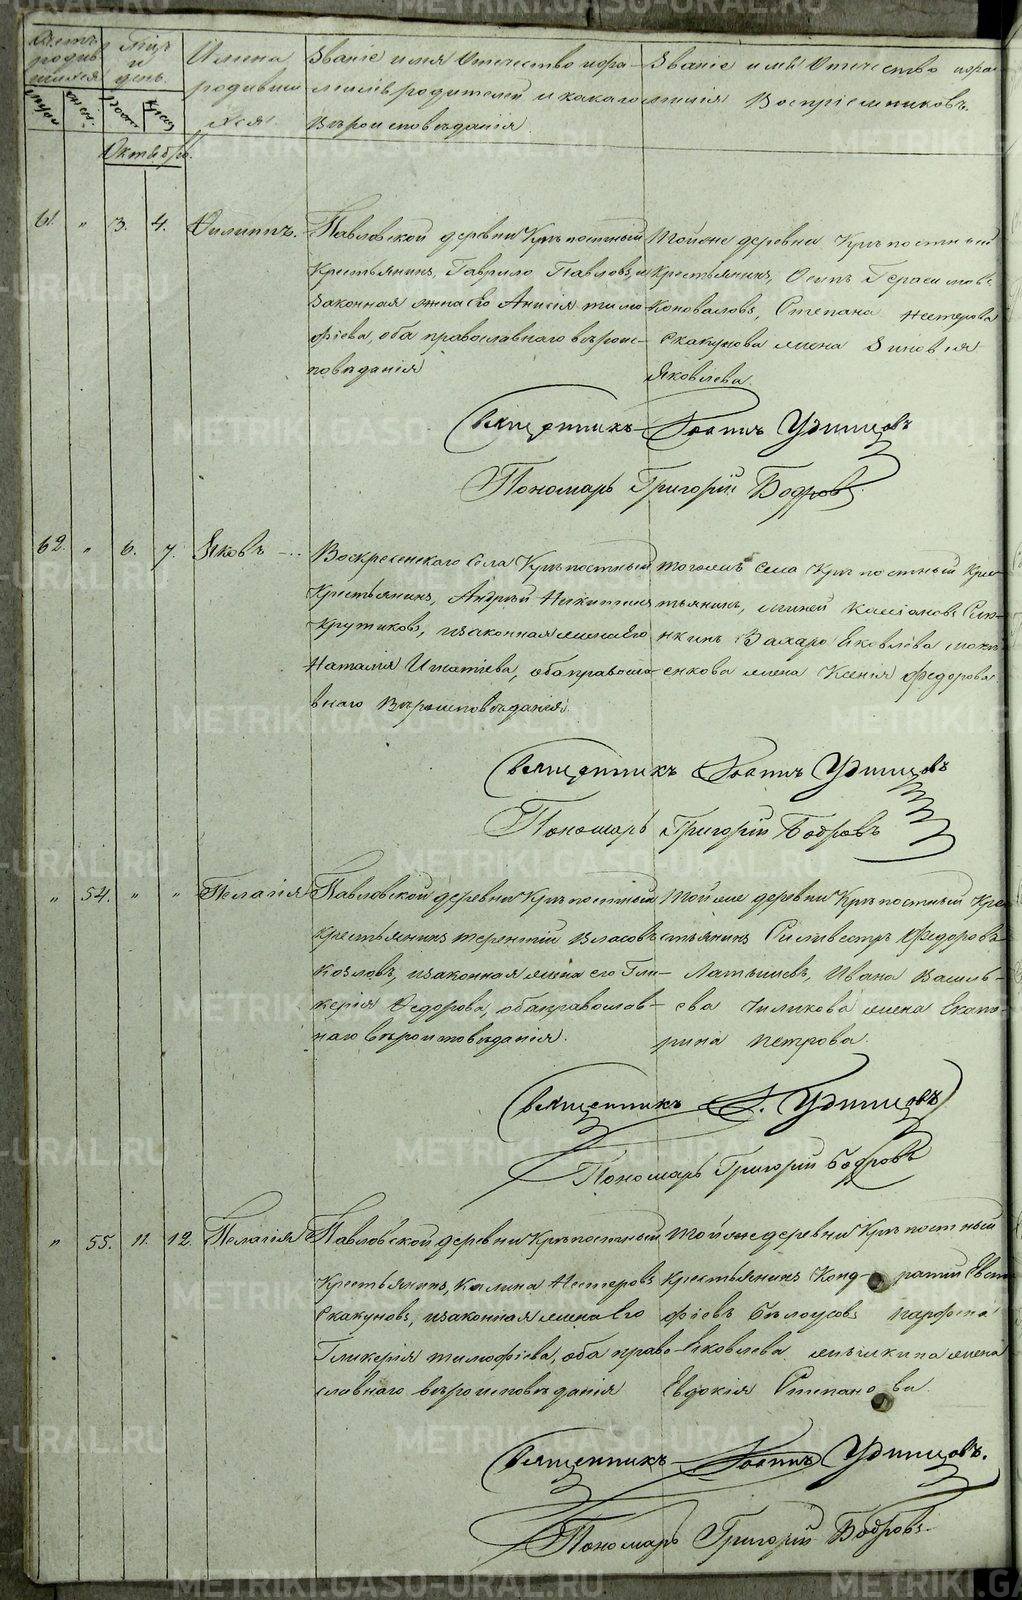 Счетъ родив шихся
Мцъ и день.
Имена родивши хся.
Званіе имя Отечество ифа- миліи родителей и какаго Вѣроисповѣданія
Званіе имя Отечество ифа- милія Воспріемниковъ.
муж. жен. рож. крещ.
Октябрь.
61. " 3. 4. Филиппъ.
Павловской деревни Крѣпостный
Крестьянинъ, Гаврило Павловъ и
Законная жена его Анисія тимо
фіева, оба православнаго вѣроис-
повѣданія
Тойже деревни Крѣпостный
крестьянинъ, Осипъ Герасимовъ
Коноваловъ, Степана Нестерова
Скакунова жена Зиновія
Яковлева.
Священникъ Іоаннъ Удинцовъ
Пономарь Григорій Бодровъ.
62. " 6. 7. Яковъ
Воскресенскаго Села Крѣпостный
Крестьянинъ, Андрей Никитинъ
Крутиковъ, изаконная жена Его
Наталія Игнатіева, оба правосла-
внаго Вѣроисповѣданія.
тогожъ Села Крѣпостный Крес-
тьянинъ, Касіановъ
Яковлева
енкова жена Ксенія Федорова
Священникъ Іоаннъ Удинцовъ
Пономарь Григорій Бодровъ
" 54. " " Пелагія
Павловской деревни Крѣпостный
крестьянинъ терентій Власовъ
Козловъ, изаконная жена его Гли-
керія Федорова, оба православ-
наго вѣроисповѣданія.
Тойже деревни Крѣпостный Крес
стьянинъ Силивестръ Федоровъ
Латышевъ, Ивана Василь-
ева Чиликова жена Екате-
рина Петрова.
Священникъ І. Удинцовъ
Пономарь Григорій Бодровъ
" 55. 11. 12. Пелагія
Павловской деревни Крѣпостный
Крестьянинъ, Калина Нестеровъ
Скакуновъ, изаконная жена Его
Гликерія тимофіева, оба право
славнаго вѣроисповѣданія
Тойже деревни Крѣпостный
крестьянинъ Кондратій Евста
фіевъ Бѣлоусовъ Парфена
Яковлева Мышкина жена
Евдокія Степанова.
Священникъ Іоаннъ Удинцовъ.
Пономарь Григорій Бодровъ.
METRIKI.GASO-URAL.RU